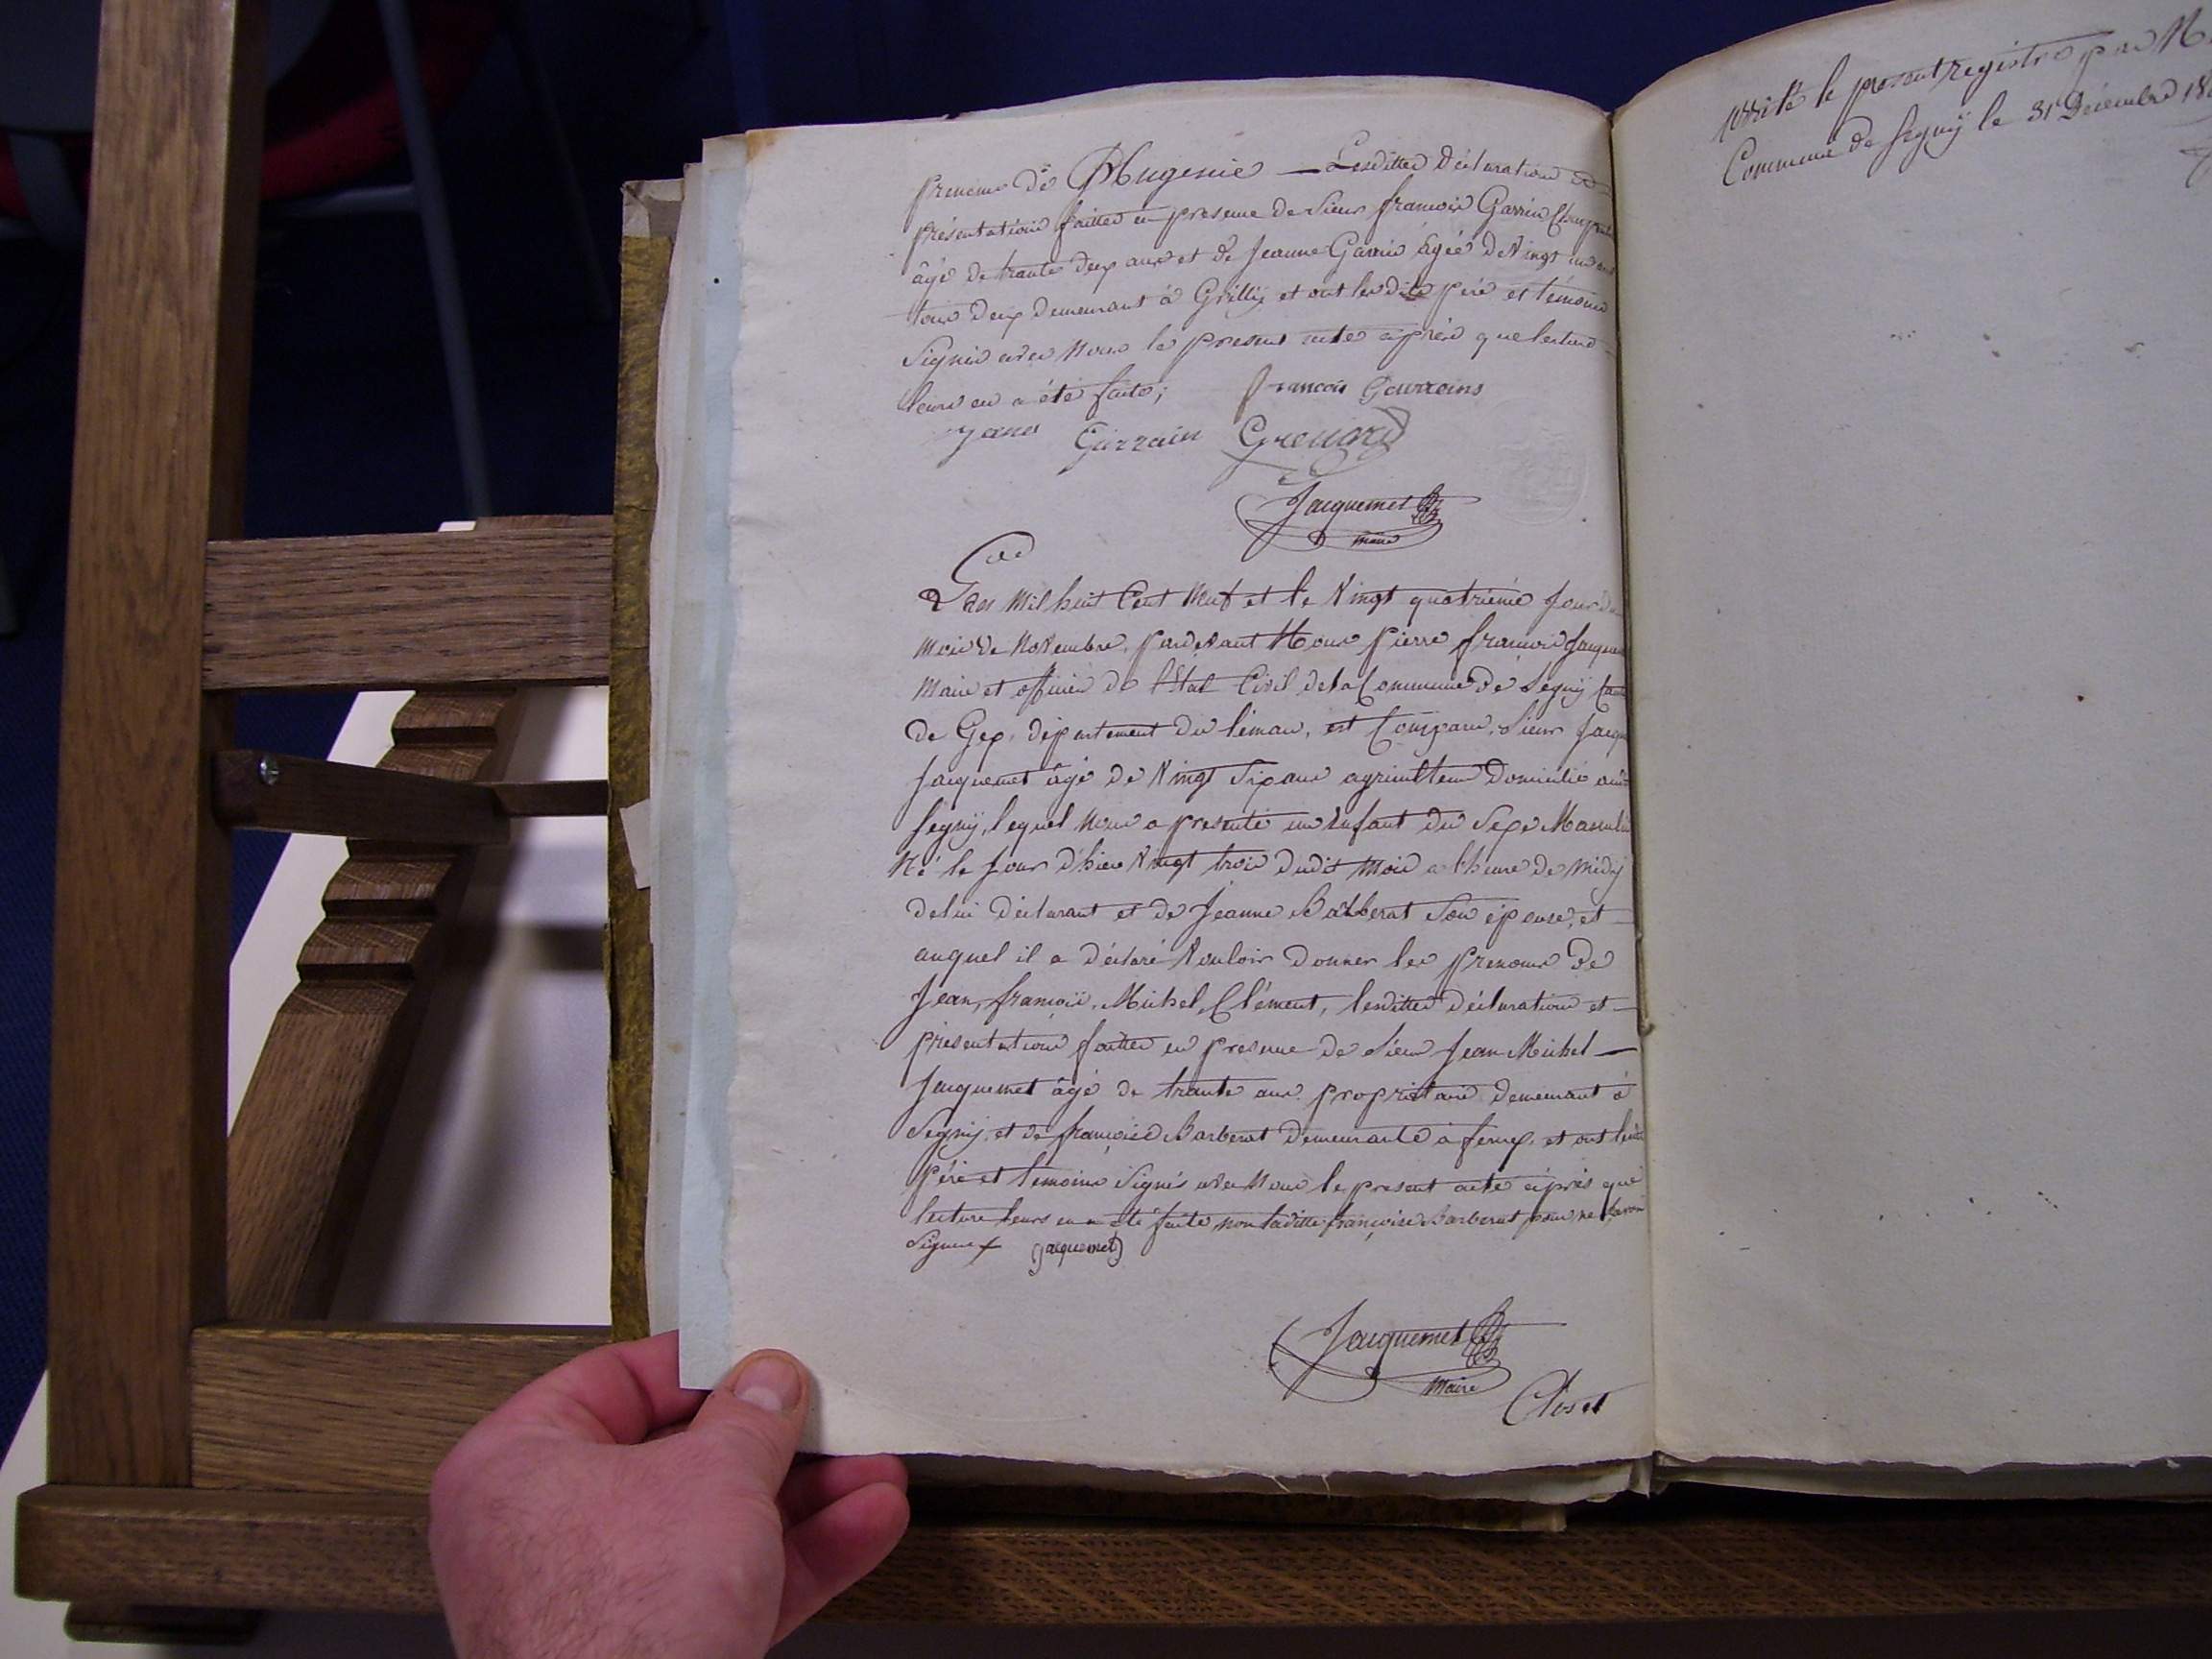 prenoms de Eugenie — Lesdittes déclaration et
présentation faittes en presence de Sieur françois Garrin
âgé de trante deux ans et de Jeanne Garrin âgée de Vingt un ans
tous deux demeurant à Grilly et ont lesdits père et temoins
Signés avec Nous le present acte après que lecture
leurs en a été faite; françois Garroins
Garrain Grenard
Jacquemet
maire
L'an Mil huit Cent Neuf et le Vingt quatrième Jour du
mois de Novembre, pardevant Nous Pierre françois Jacquemet
Maire et officier de l'Etat Civil de la Commune de Segny
de Gex, département du léman, est Comparu, Sieur
Jacquemet âgé de Vingt Six ans agriculteur Domicilié audit
Segny, lequel Nous a presenté un Enfant du Sexe Masculin
Né le Jour d'hier Vingt trois dudit Mois a l'heure de Midy
de lui déclarant et de Jeanne Barberat Son épouse, et
auquel il a déclaré Vouloir Donner les prenoms de
Jean, françois, Michel, Clément, lesdittes déclaration et
présentation faittes en presence de Sieur Jean Michel
Jacquemet âgé de trante ans propriétaire demeurant à
Segny, et de françoise Barberat demeurante à fernex, et ont lesdits
père et témoins Signés avec Nous le present acte après que
lecture leurs en a été faite non laditte françoise Barberat pour ne Savoir
Signer Jacquemet
Jacquemet
Maire
Closet
Arrêté le present registre par N
Commune de Segny le 31 Décembre